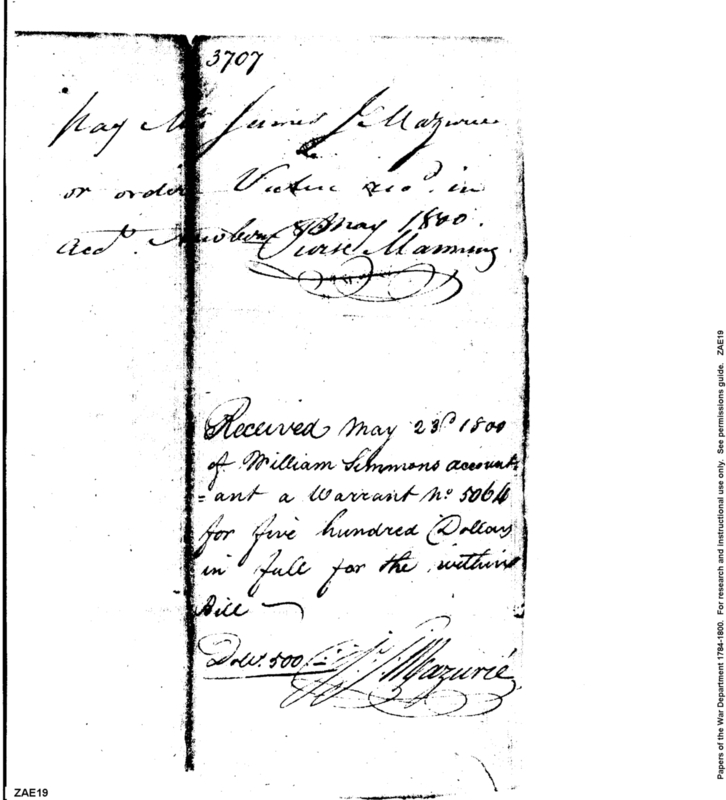 3707
Pay Mr. James J. Mazurie
or order Value recd. in
acct. Newbern 8 May 1800.
Manning
Received May 23d. 1800
of William Simmons account
=ant a Warrant No. 5064
for five hundred Dollars
in full for the within
Bill
Dolls. 500
J. J. Mazurié
ZAE19
Papers of the War Department 1784-1800. For research and instructional use only. See permissions guide. ZAE19